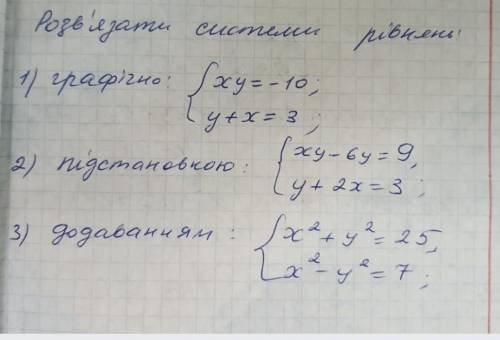 Розв'язати системи рівнянь:
1) графічно: { xy = -10;
y + x = 3;
2) підстановкою: { xy - 6y = 9,
y + 2x = 3;
3) додаванням: { x² + y² = 25,
x² - y² = 7;